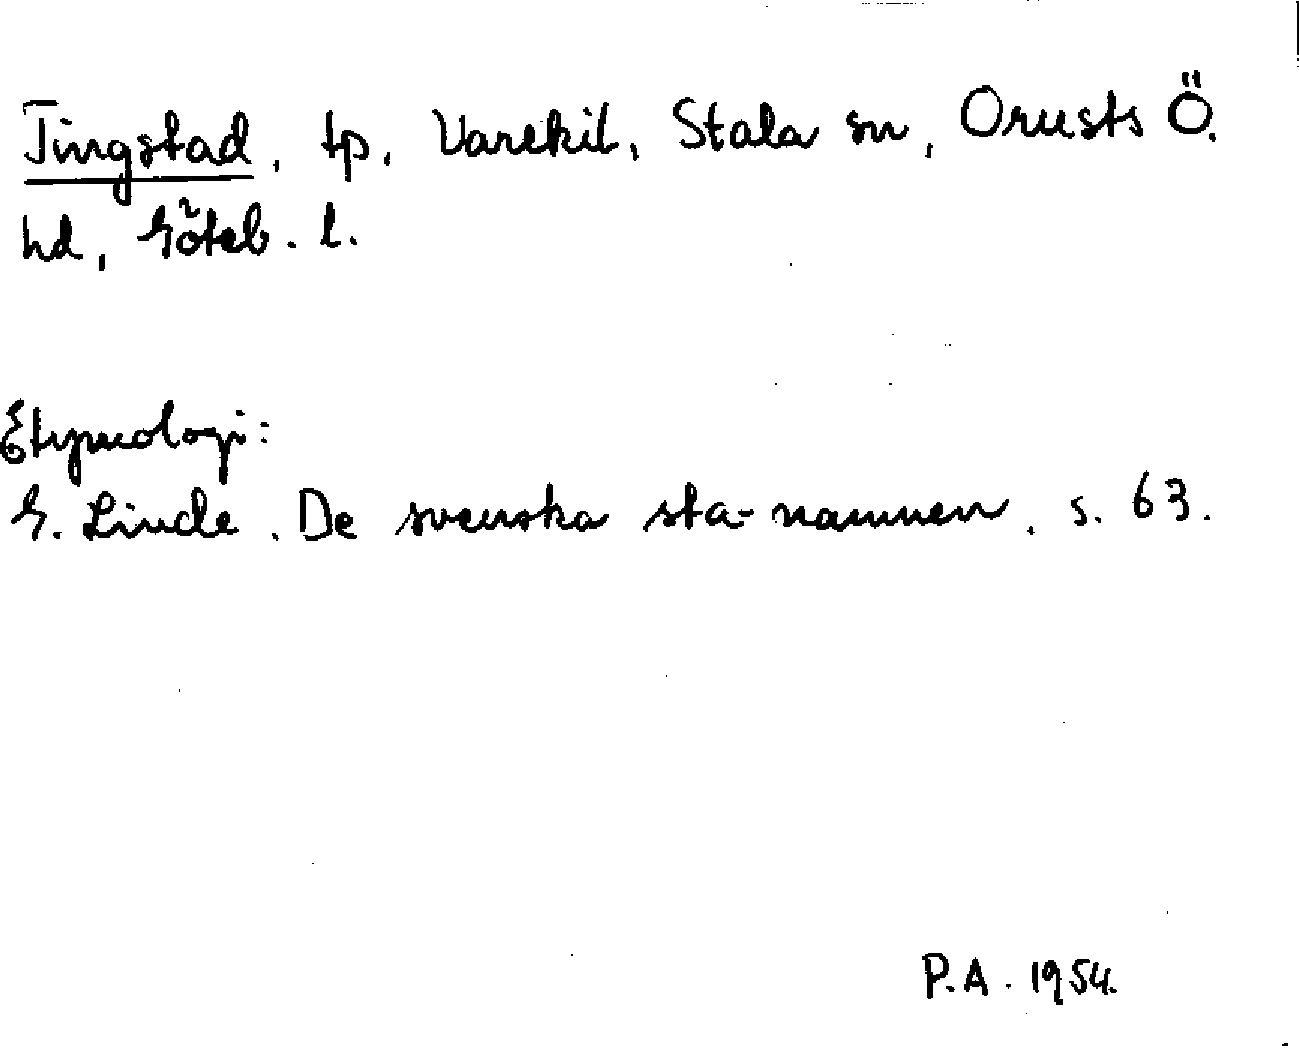 Tingstad, tp, Varekil, Stala sn, Orusts Ö.
hd, Göteb. l.
Etymologi:
G. Linde. De svenska sta-namnen, s. 63.
P.A. 1954.